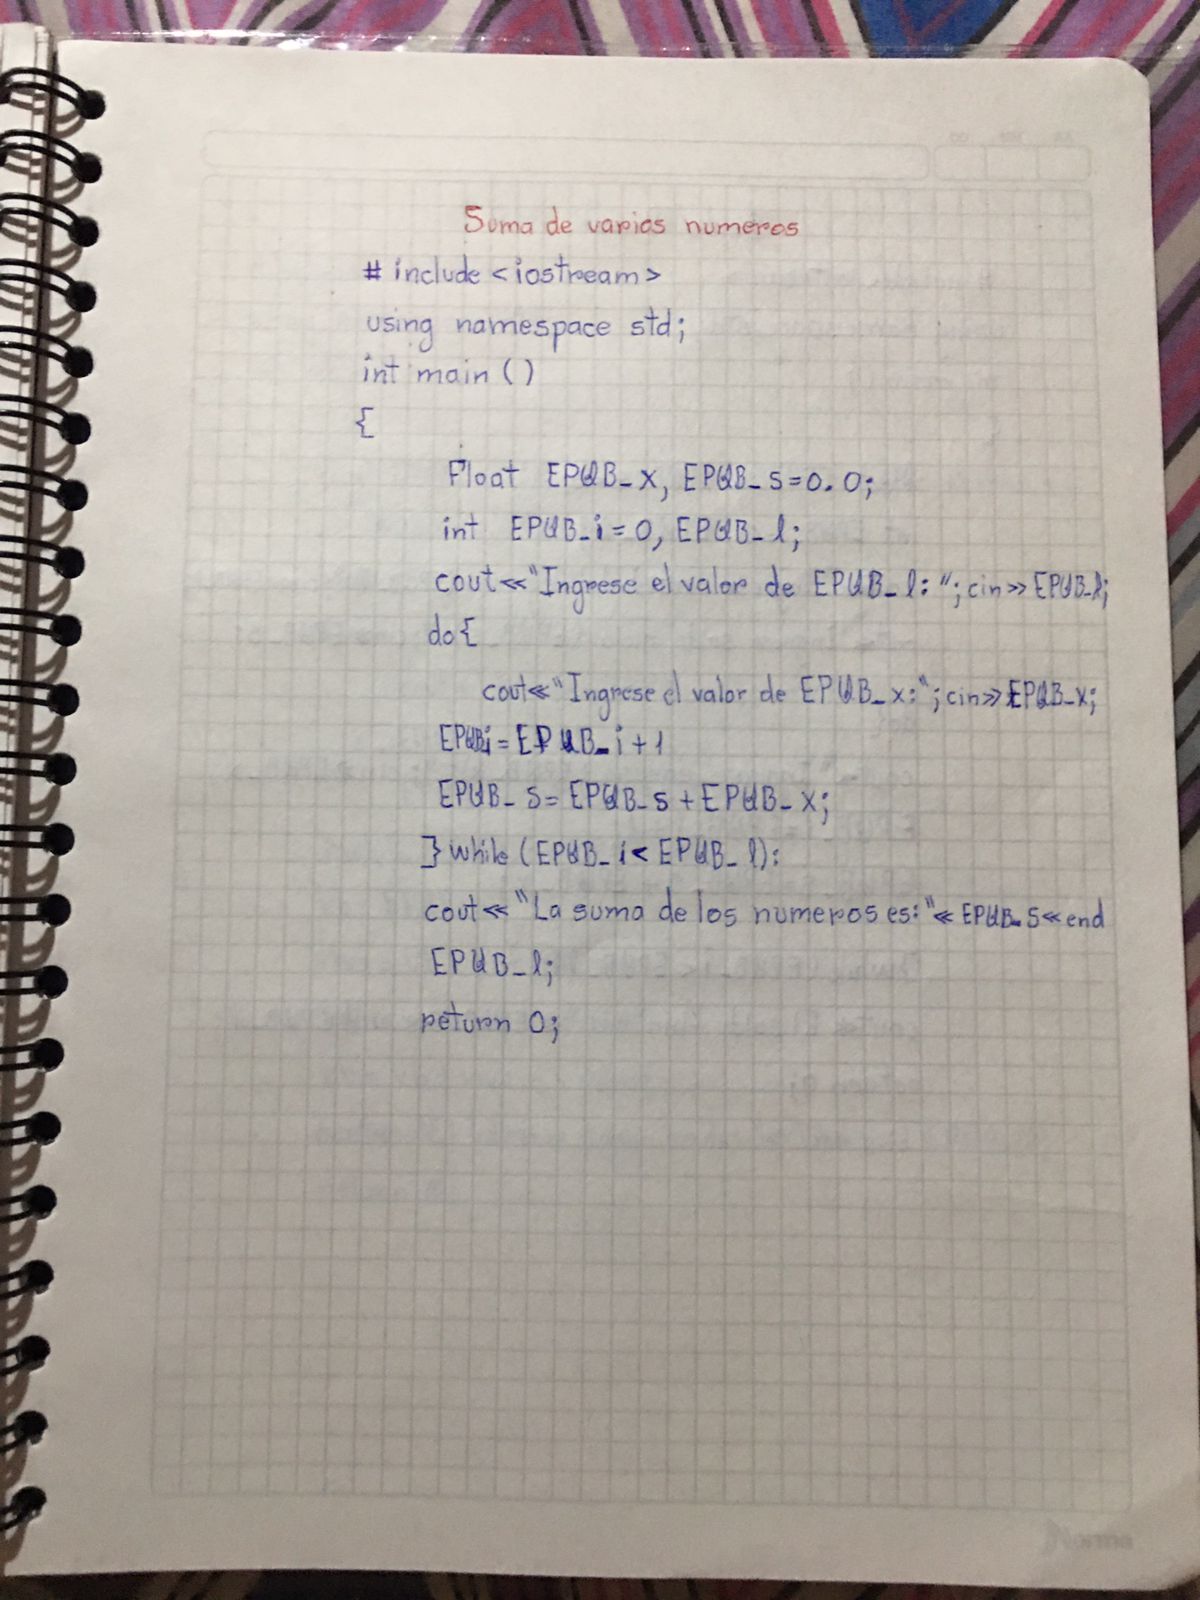 Suma de varios numeros
# include <iostream>
using namespace std;
int main ()
{
Float EPUB_x, EPUB_s=0.0;
int EPUB_i=0, EPUB_l;
cout<<"Ingrese el valor de EPUB_l: "; cin>> EPUB_l;
do{
cout<<"Ingrese el valor de EPUB_x:"; cin>>EPUB_x;
EPUBi=EPUB_i+1
EPUB_s=EPUB_s+EPUB_x;
}while (EPUB_i< EPUB_l):
cout<<"La suma de los numeros es:"<< EPUB_s<<end
EPUB_l;
return 0;
Norma